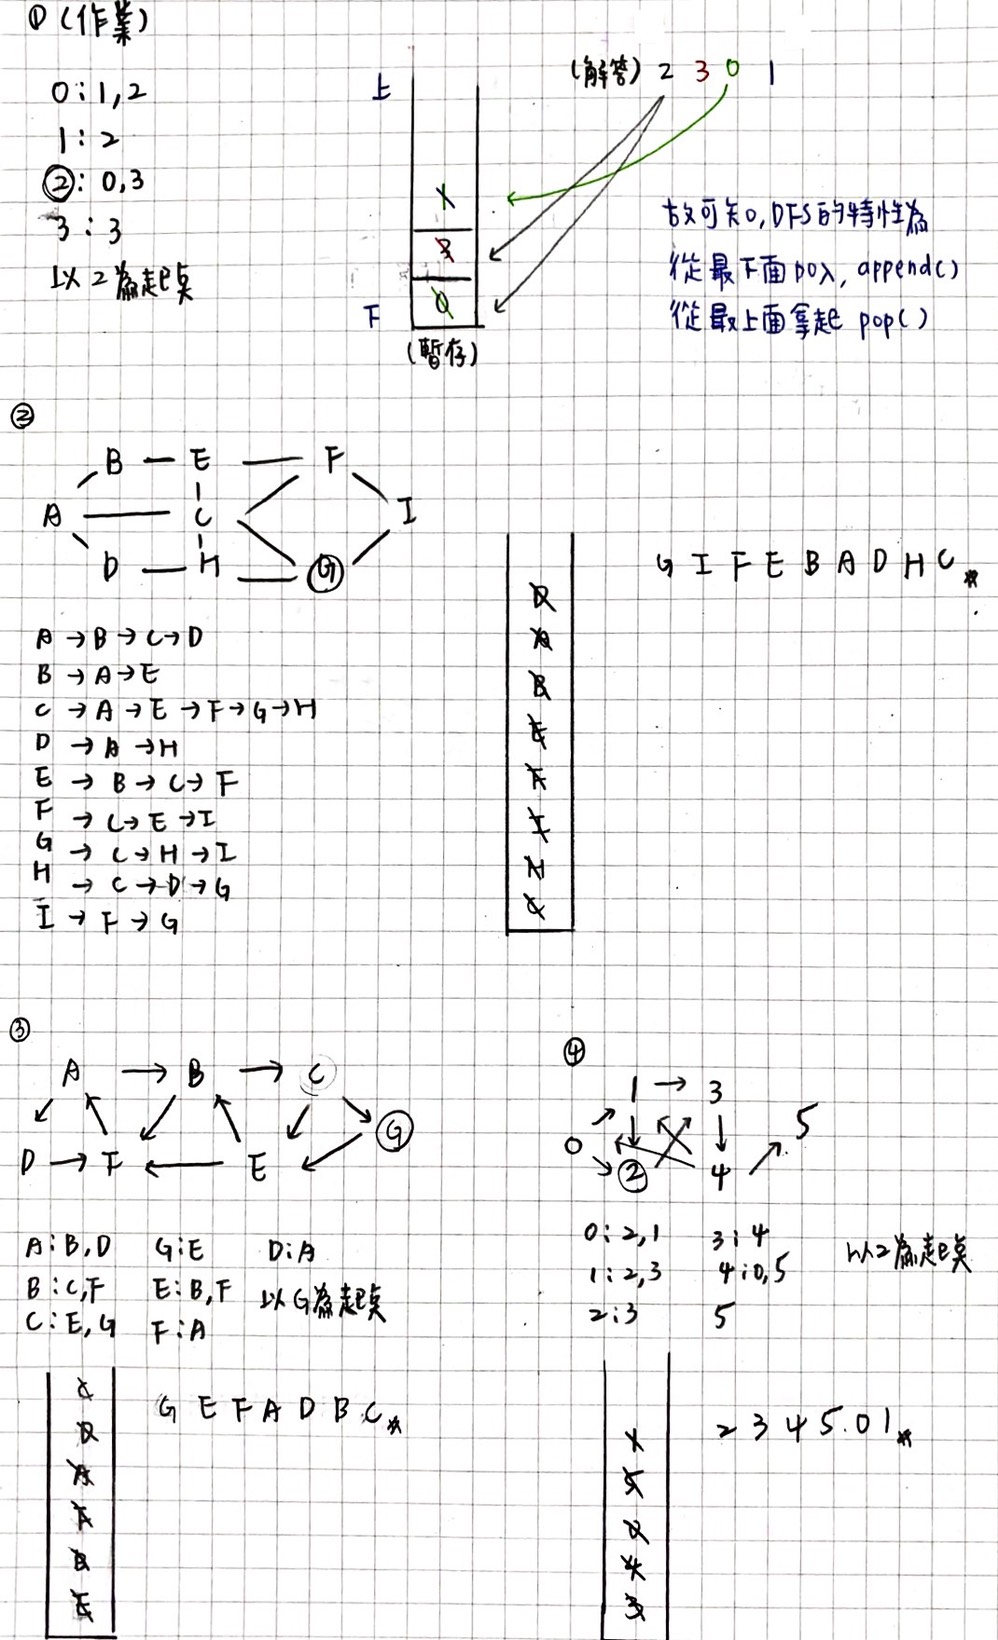 ① (作業)
0:1,2
1:2
②:0,3
3:3
以2為起点
上
1
3
0
下
(暫存)
(解答) 2 3 0 1
故可知,DFS的特性為
從最下面放入, append()
從最上面拿起 pop()
②
B E F
A C I
D H G
A→B→C→D
B→A→E
C→A→E→F→G→H
D→A→H
E→B→C→F
F→C→E→I
G→C→H→I
H→C→D→G
I→F→G
D
A
B
E
F
I
H
C
G I F E B A D H C
③
A → B → C
G
D → F ← E
A:B,D G:E D:A
B:C,F E:B,F 以G為起点
C:E,G F:A
C
D
A
F
B
E
G E F A D B C
④
1 → 3
0 5
② 4
0:2,1 3:4
1:2,3 4:0,5 以2為起点
2:3 5
1
5
0
4
3
2 3 4 5 0 1